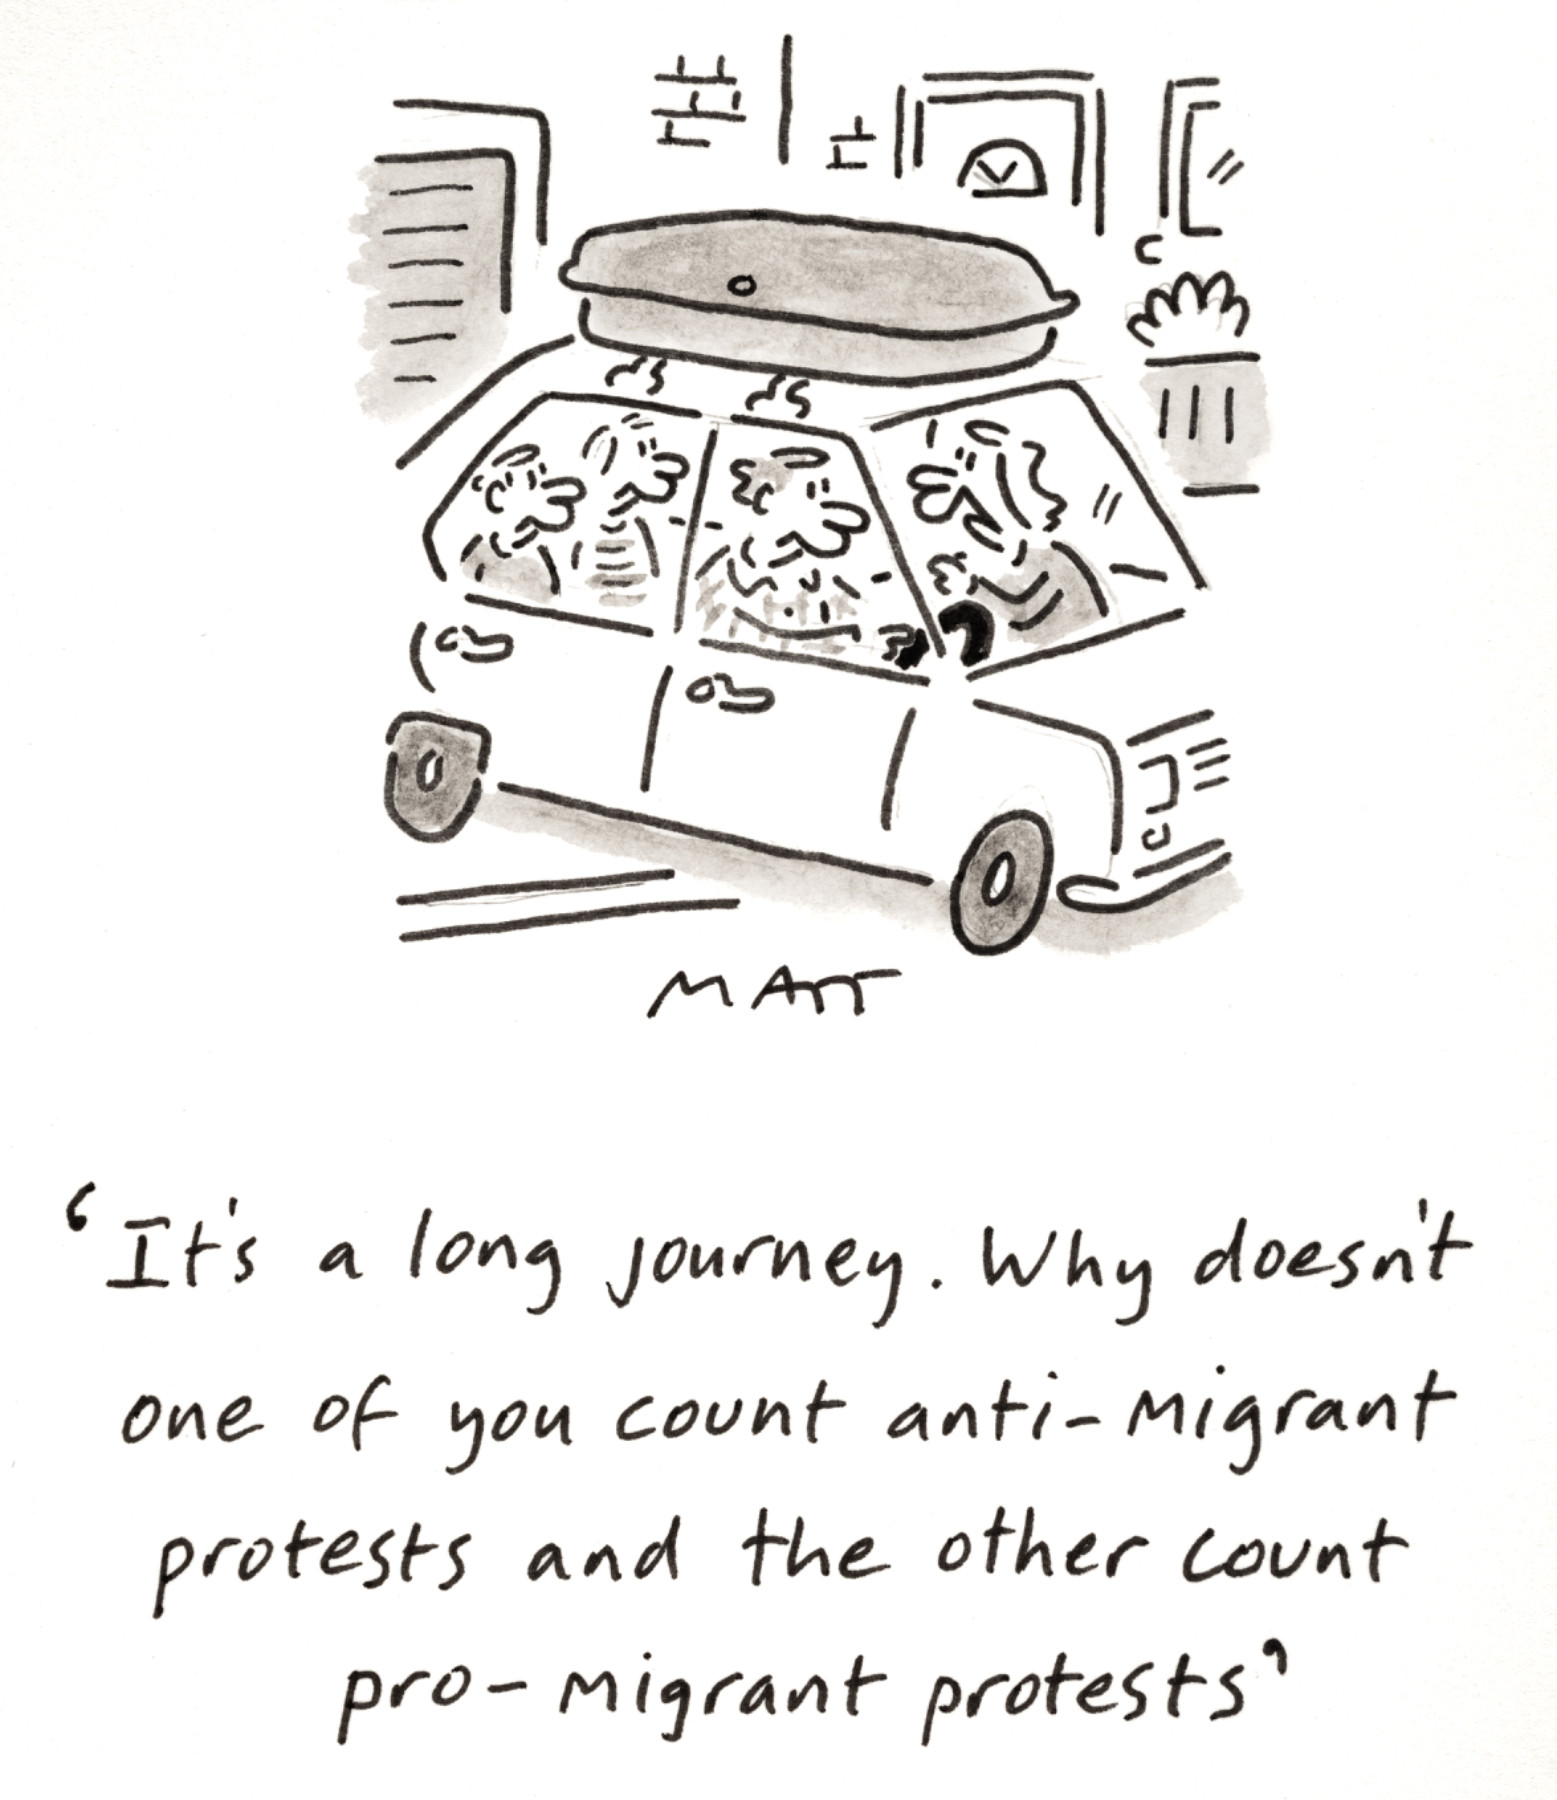 MATT
‘It's a long journey. Why doesn't
one of you count anti-migrant
protests and the other count
pro-migrant protests’